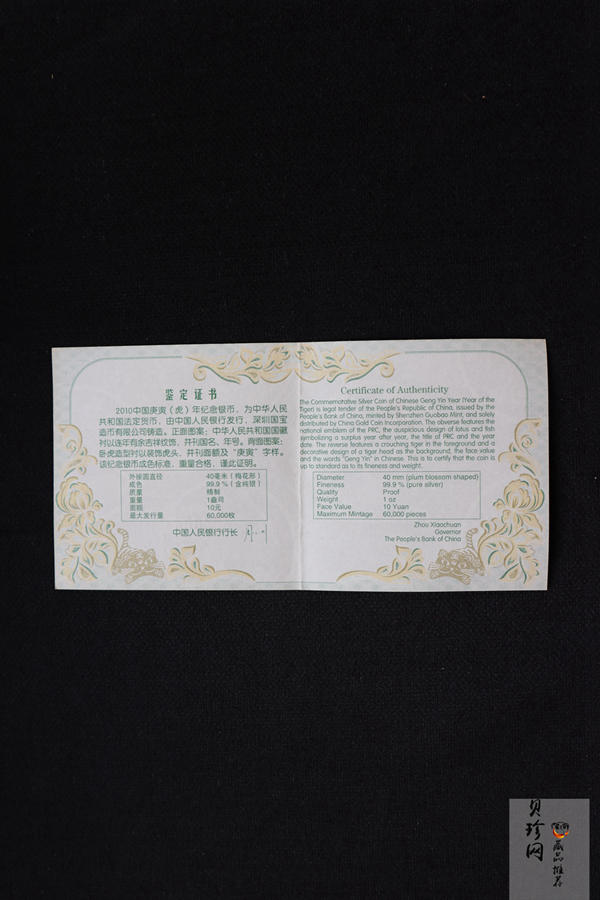 鉴定证书
2010中国庚寅（虎）年纪念银币，为中华人民
共和国法定货币，由中国人民银行发行，深圳国宝
造币有限公司铸造。正面图案：中华人民共和国国徽
衬以连年有余吉祥纹饰，并刊国名、年号。背面图案：
卧虎造型衬以装饰虎头，并刊面额及“庚寅”字样。
该纪念银币成色标准，重量合格，谨此证明。
外接圆直径 40毫米（梅花形）
成色 99.9％（含纯银）
质量 精制
重量 1盎司
面额 10元
最大发行量 60,000枚
中国人民银行行长
Certificate of Authenticity
The Commemorative Silver Coin of Chinese Geng Yin Year (Year of the
Tiger) is legal tender of the People's Republic of China, issued by the
People's Bank of China, minted by Shenzhen Guobao Mint, and solely
distributed by China Gold Coin Incorporation. The obverse features the
national emblem of the PRC, the auspicious design of lotus and fish
symbolizing a surplus year after year, the title of PRC and the year
date. The reverse features a crouching tiger in the foreground and a
decorative design of a tiger head as the background, the face value
and the words "Geng Yin" in Chinese. This is to certify that the coin is
up to standard as to its fineness and weight.
Diameter 40 mm (plum blossom shaped)
Fineness 99.9 % (pure silver)
Quality Proof
Weight 1 oz
Face Value 10 Yuan
Maximum Mintage 60,000 pieces
Zhou Xiaochuan
Governor
The People's Bank of China
贝珍网
藏品推荐